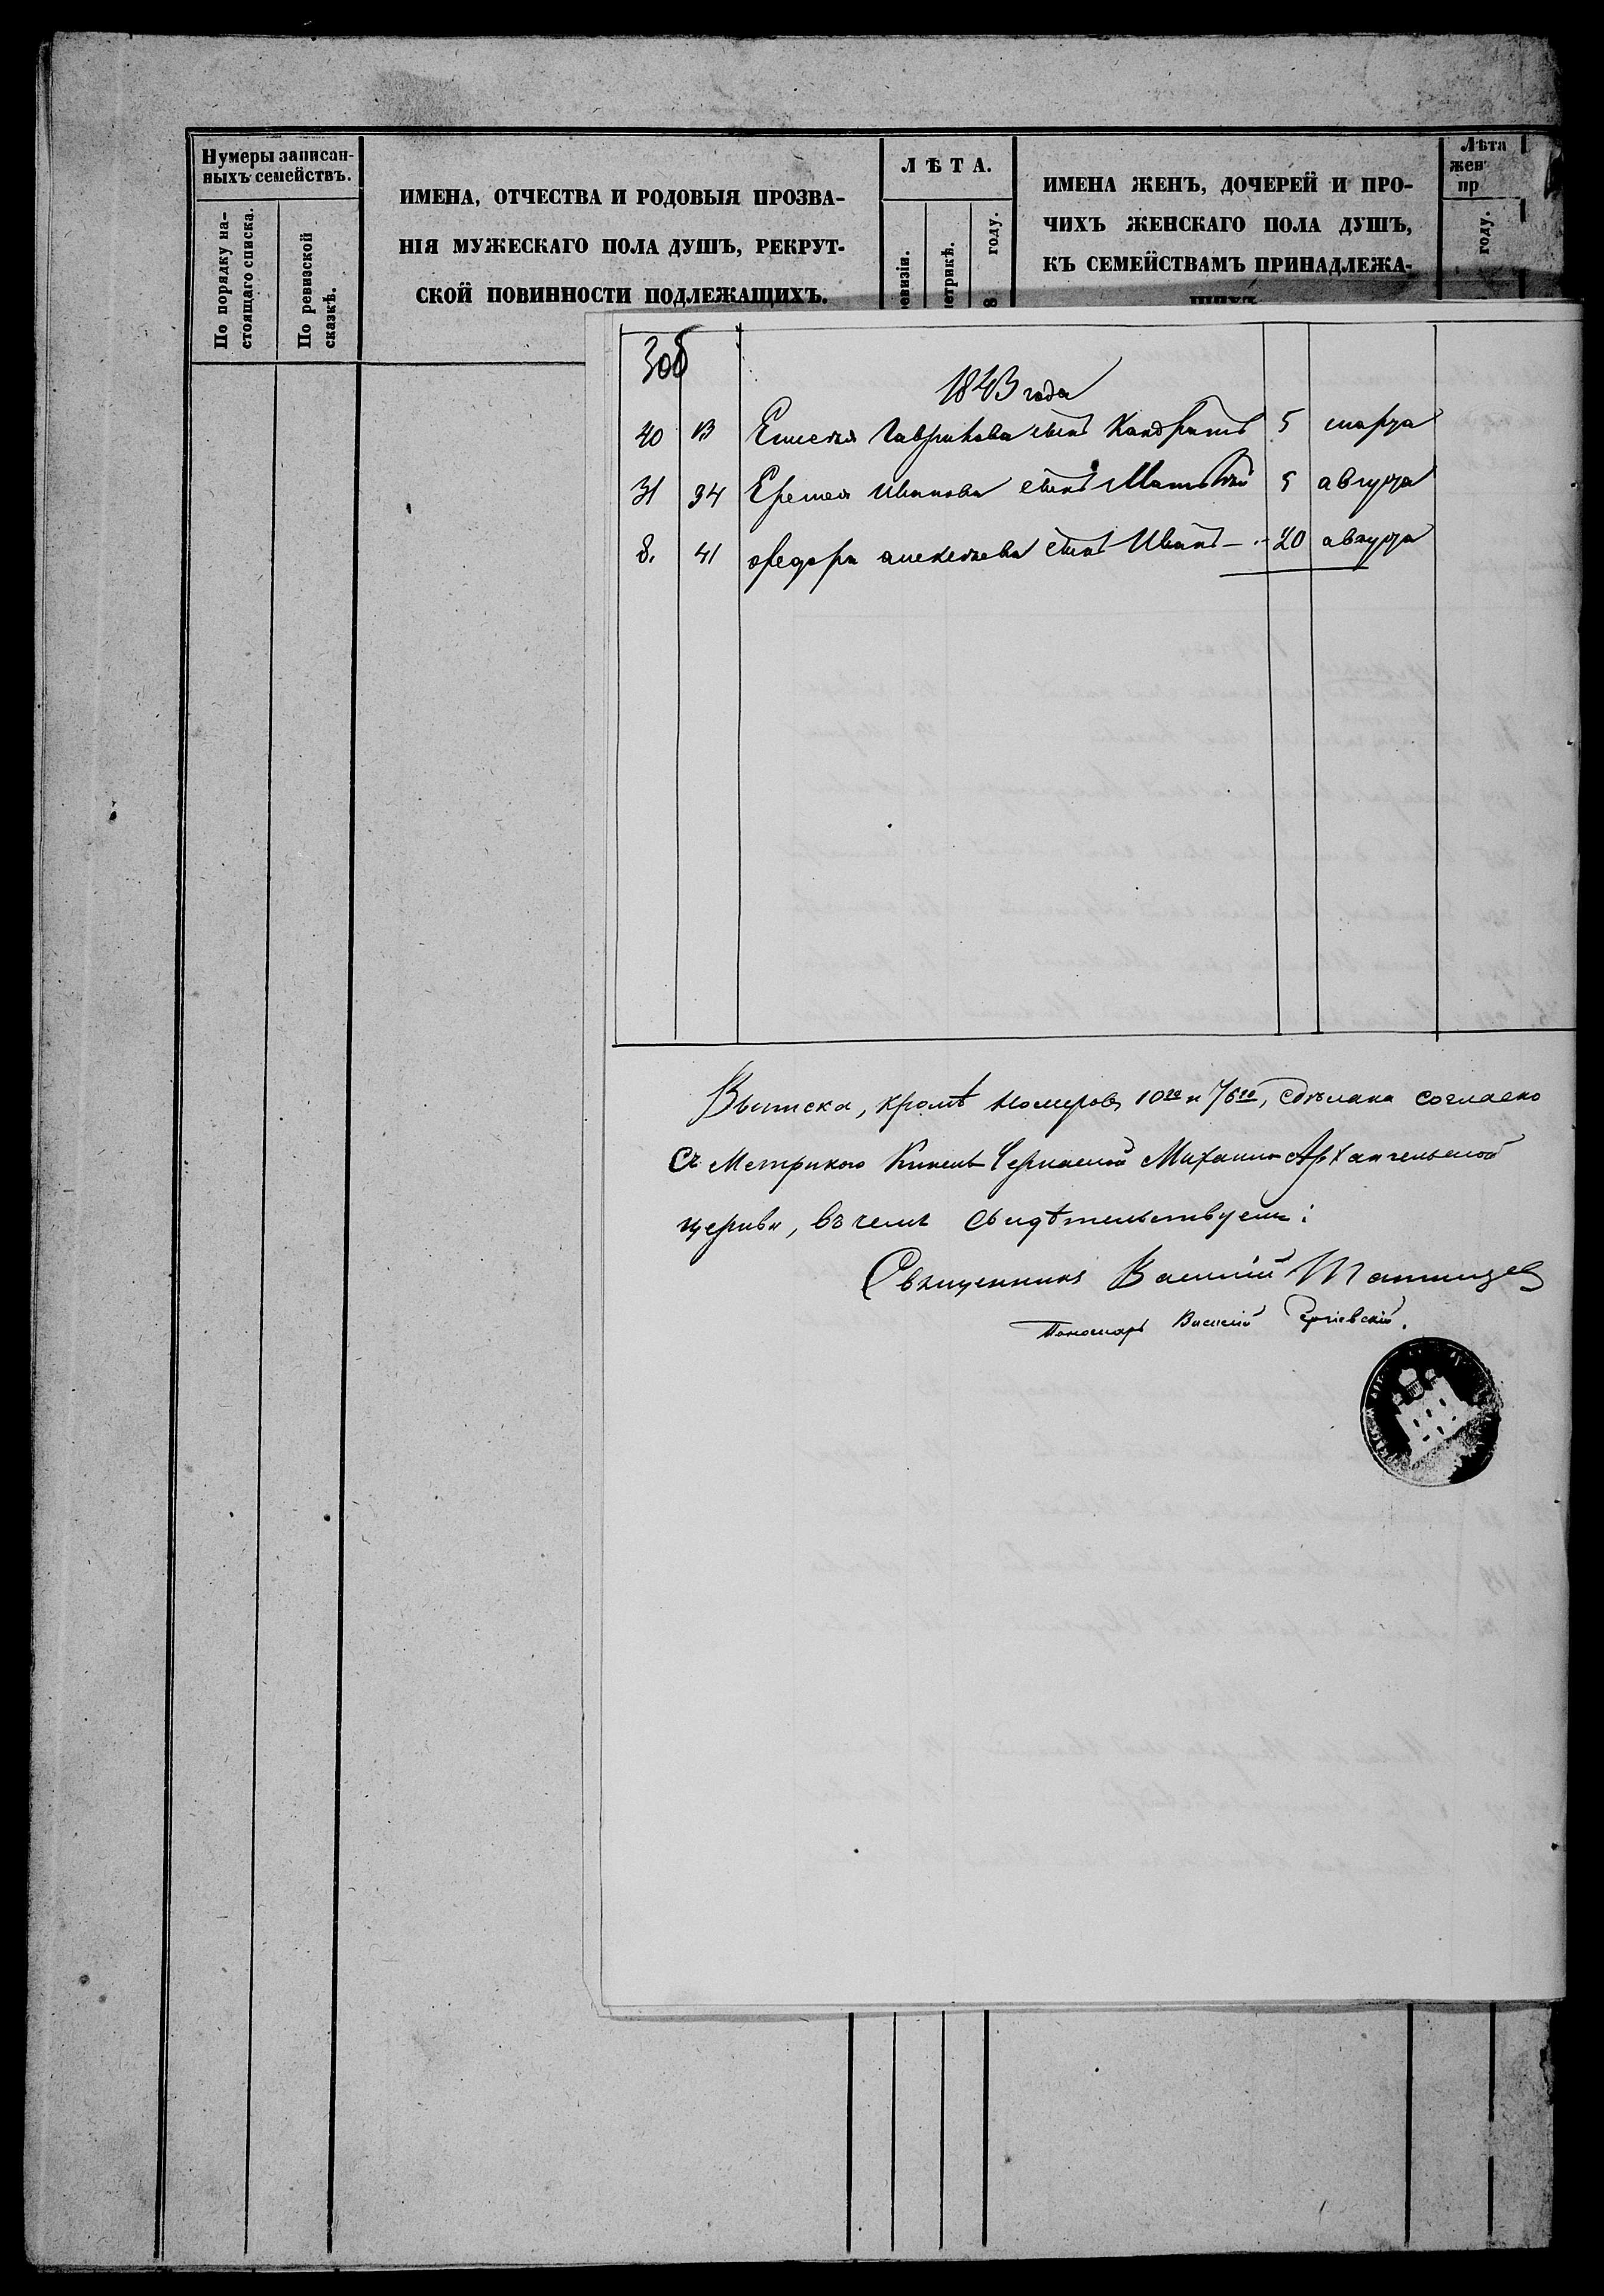 Нумеры записан-
ныхъ семействъ.
По порядку на-
стоящаго списка.
По ревизской
сказкѣ.
ИМЕНА, ОТЧЕСТВА И РОДОВЫЯ ПРОЗВА-
НІЯ МУЖЕСКАГО ПОЛА ДУШЪ, РЕКРУТ-
СКОЙ ПОВИННОСТИ ПОДЛЕЖАЩИХЪ.
ЛѢТА.
евизіи.
етрикѣ.
8 году.
ИМЕНА ЖЕНЪ, ДОЧЕРЕЙ И ПРО-
ЧИХЪ ЖЕНСКАГО ПОЛА ДУШЪ,
КЪ СЕМЕЙСТВАМЪ ПРИНАДЛЕЖА-
Лѣта
жен
пр
году.
1843 года
40 13 Елисея Гаврилова сынъ Кондратъ 5 марта
31 34 Еремея Иванова сынъ Матвѣй 5 августа
8. 41 Федора Алексѣева сынъ Иванъ — 20 августа
Выписка, кромѣ номеровъ 10го и 76го, сдѣлана согласно
съ Метрикою Кинель Черкаской Михаило-Архангельской
церкви, въ чемъ свидѣтельствуемъ:
Священникъ Василій
Пономарь Василій Сергіевскій.